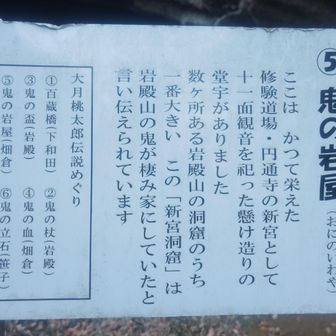 ⑤ 鬼の岩屋
(おにのいわや)
ここは かつて栄えた
修験道場・円通寺の新宮として
十一面観音を祀った懸け造りの
堂宇がありました
数ヶ所ある岩殿山の洞窟のうち
一番大きい この「新宮洞窟」は
岩殿山の鬼が棲み家にしていたと
言い伝えられています
大月桃太郎伝説めぐり
①百蔵橋(下和田) ②鬼の杖(岩殿)
③鬼の盃(岩殿) ④鬼の血(畑倉)
⑤鬼の岩屋(畑倉) ⑥鬼の立石(笹子)